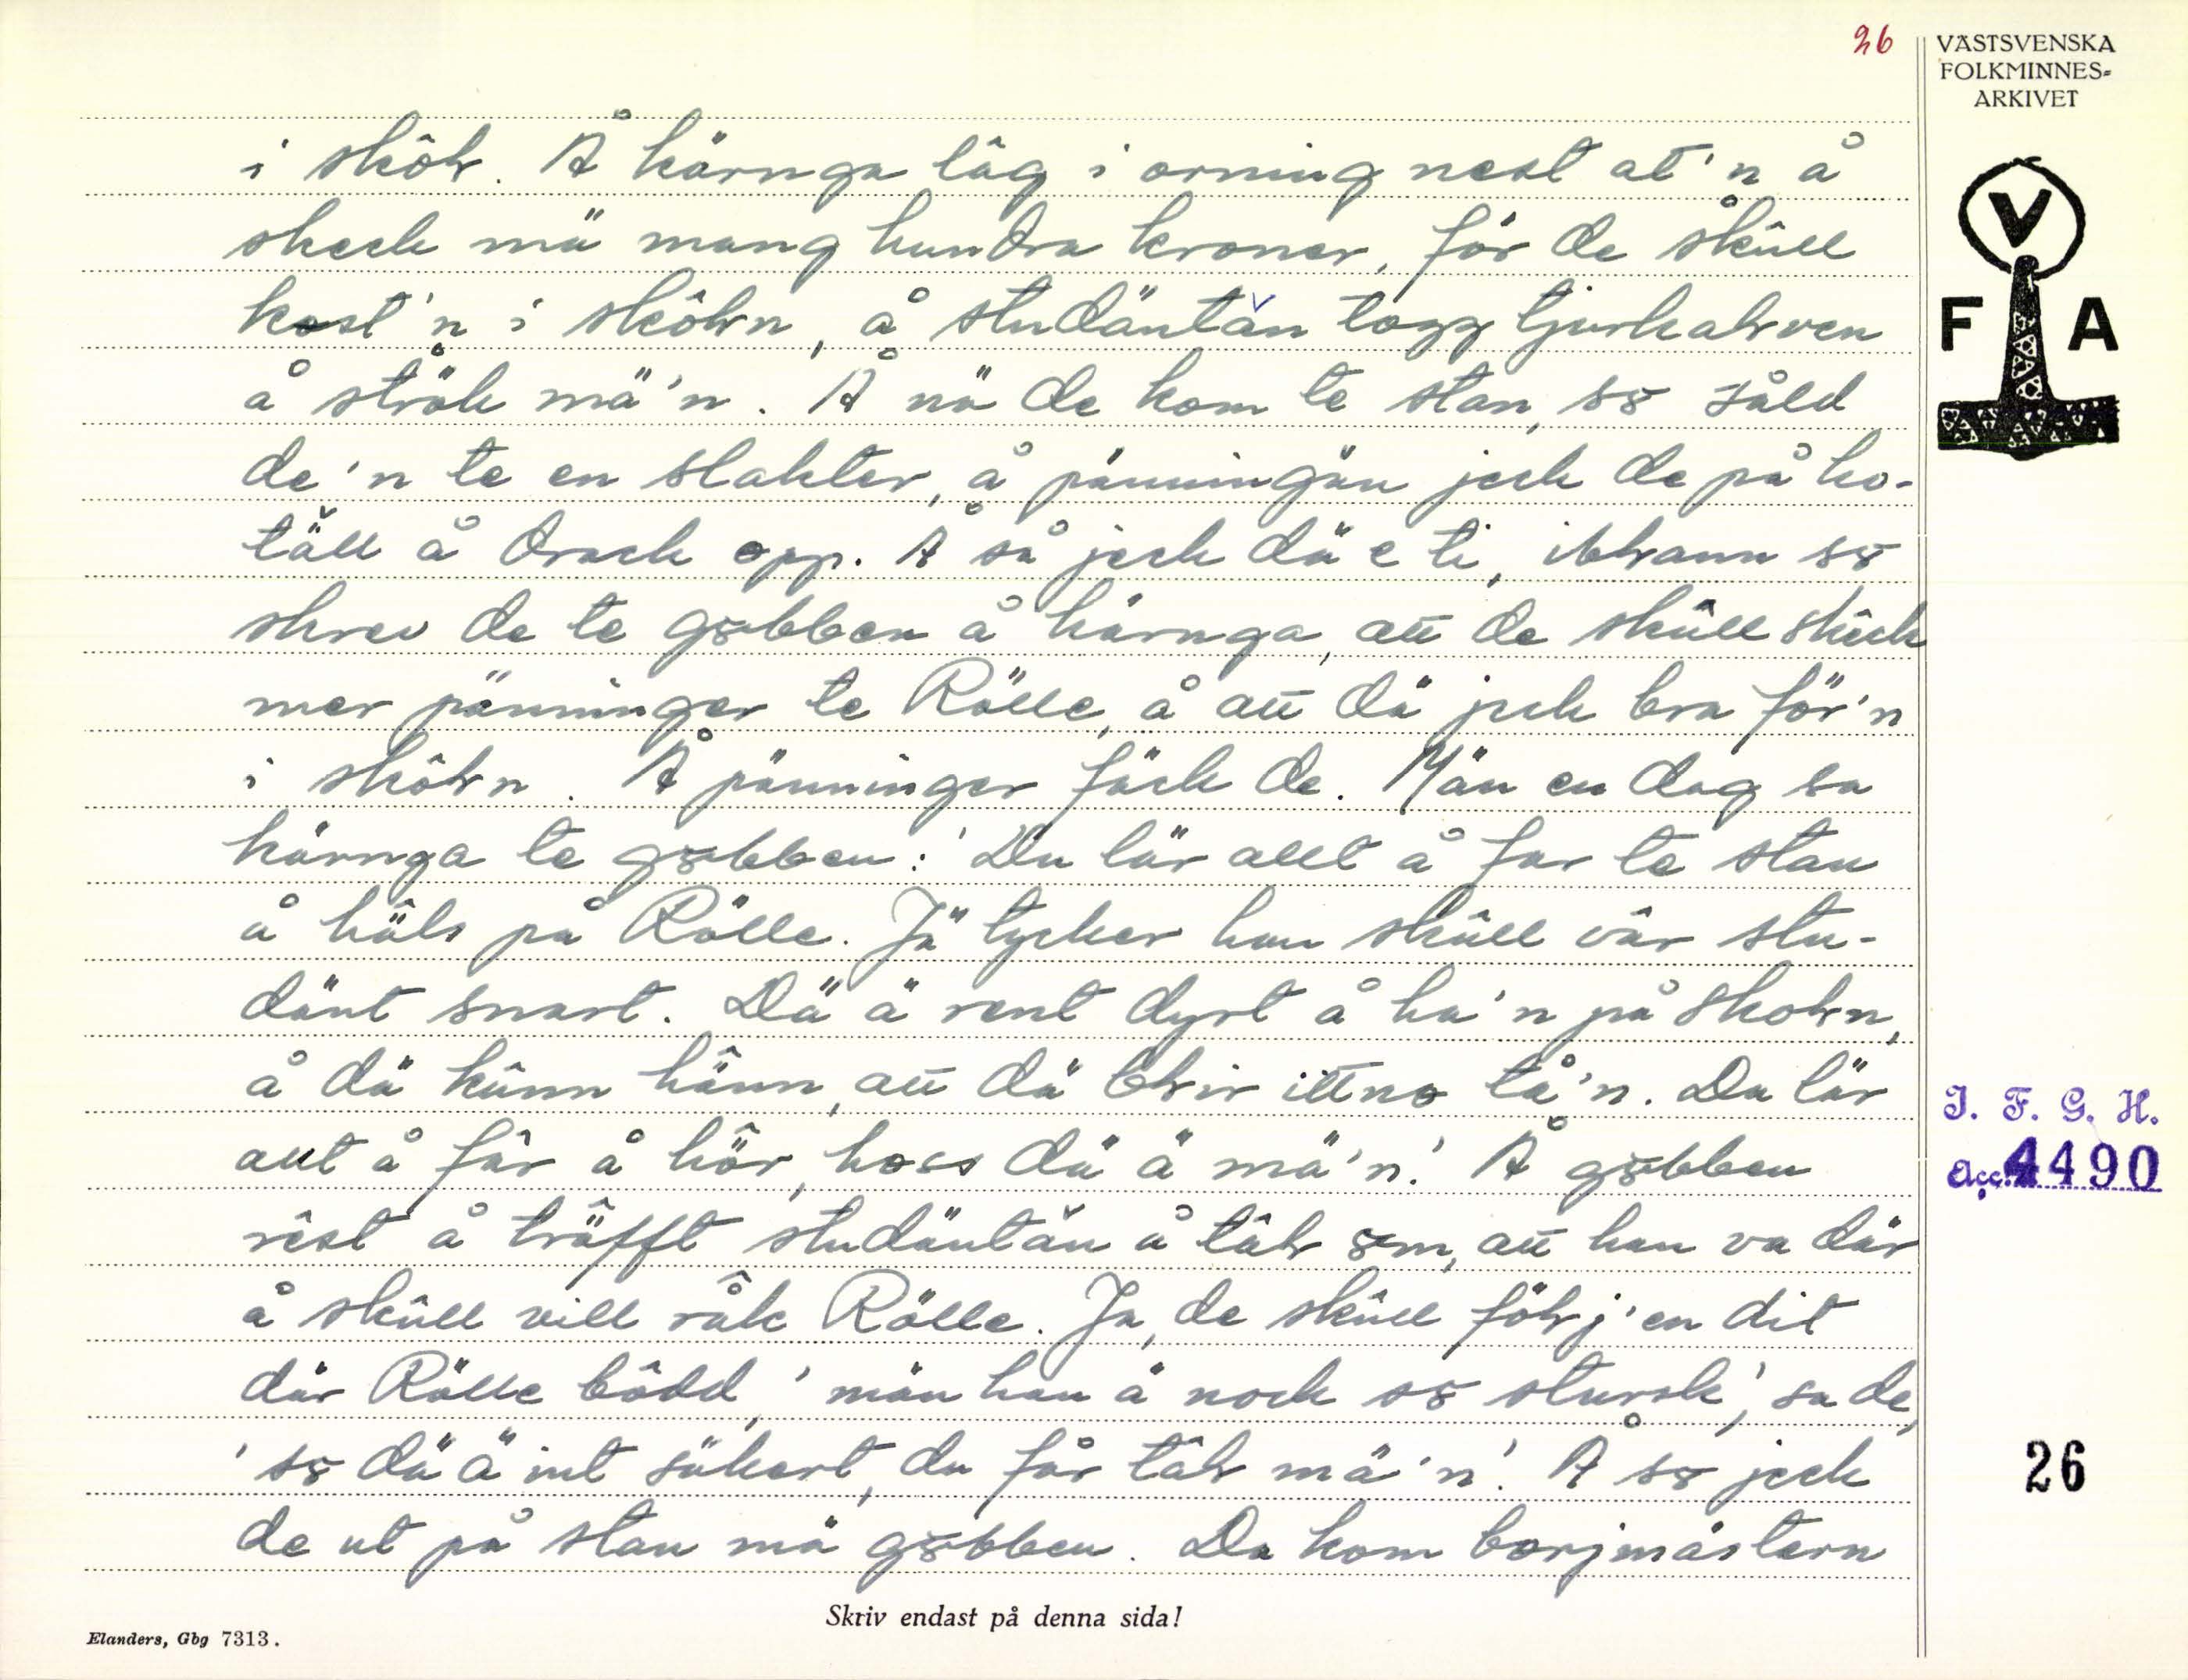 26
VÄSTSVENSKA
FOLKMINNES-
ARKIVET
V
F A
i skôhr. Å kärnga lâg i orning nest at'n å
skeck mä mang hundra kroner, för de skûll
kost'n i skôhrn, å studäntän togg tjurkahrven
å strök mä'n. Å nä de kom te stan, sô såld
de'n te en slakter, å pänningän jeck de på ho-
täll å drack opp. Å så jeck dä e ti, ibhrann sô
skrev de te gôbben å kärnga, att de skûll skeck
mer pänninger te Rölle, å att dä jeck bra för'n
i skôhrn. Å pänninger fäck de. Män en dag sa
kärnga te gôbben: 'Du lär allt å far te stan
å häls på Rölle. Jä tycker han skûll vâr stu-
dänt snart. Dä ä rent dyrt å ha'n på skohrn,
å dä kûnn hänn, att dä bhrir ittno tå'n. Du lär
allt å fâr å hôr, hoss dä ä mä'n.' Å gôbben
rêst å träfft studäntän å tâhr ôm, att han va där
å skûll vill råk Rölle. Ja, de skûll föhrj'en dit
där Rölle bôdd, 'män han ä nock sô stursk', sa de,
'sô dä ä int säkert, du får tâhr mä'n.' Å sô jeck
de ut på stan mä gôbben. Da kom borjmästern
I. F. G. H.
Acc. 4490
26
Skriv endast på denna sida!
Elanders, Gbg 7313.